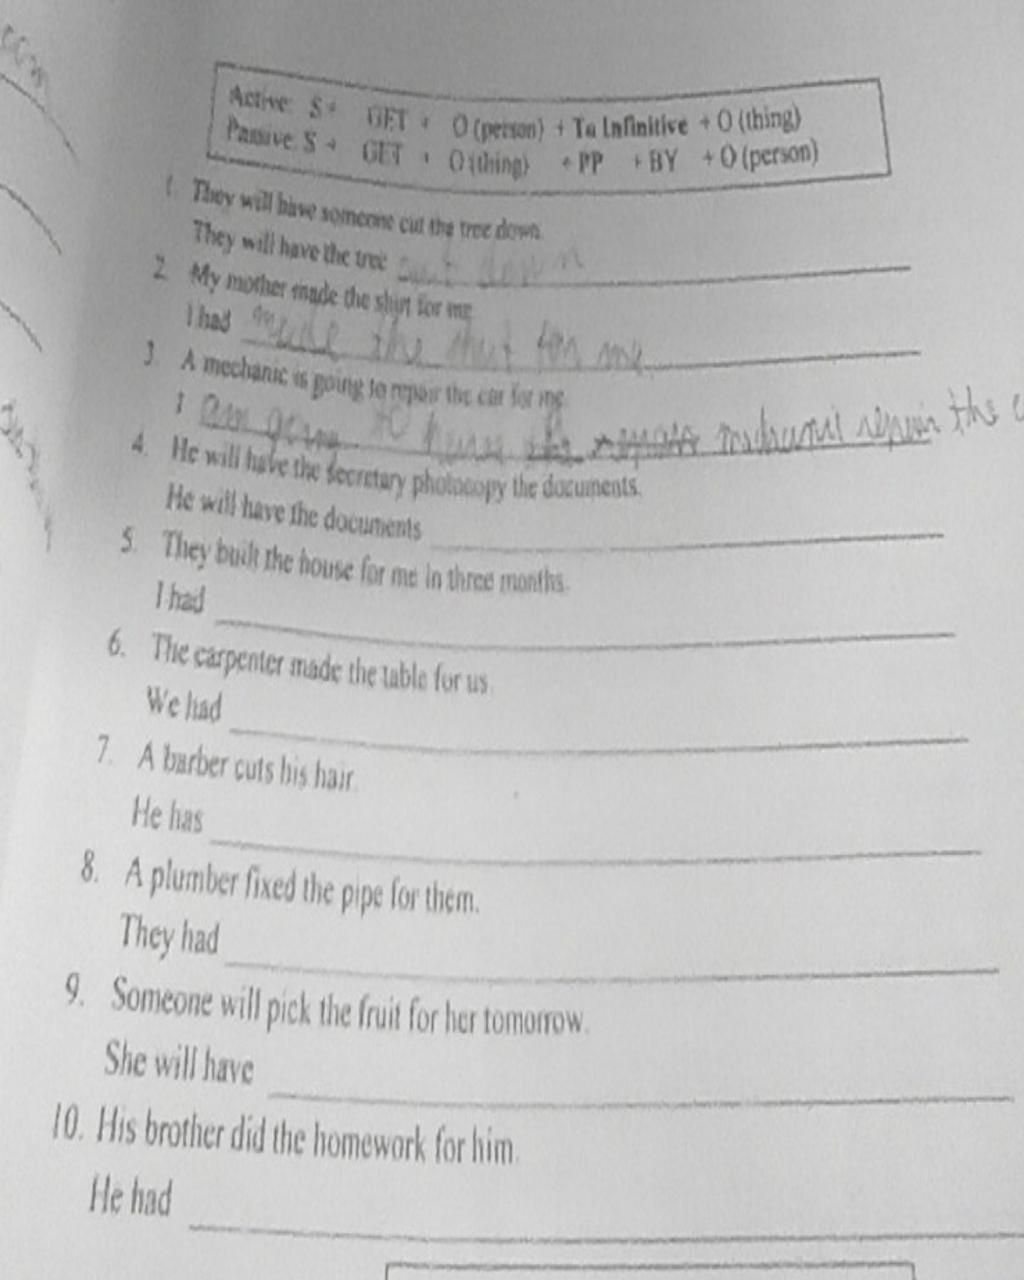 Active: S + GET + O (person) + To Infinitive + O (thing)
Passive: S + GET + O (thing) + PP + BY + O (person)
1. They will have someone cut the tree down.
They will have the tree cut down
2. My mother made the shirt for me.
I had made the shirt for me
3. A mechanic is going to repair the car for me.
I am going to have the mechanic repair the c
4. He will have the secretary photocopy the documents.
He will have the documents
5. They built the house for me in three months.
I had
6. The carpenter made the table for us.
We had
7. A barber cuts his hair.
He has
8. A plumber fixed the pipe for them.
They had
9. Someone will pick the fruit for her tomorrow.
She will have
10. His brother did the homework for him.
He had